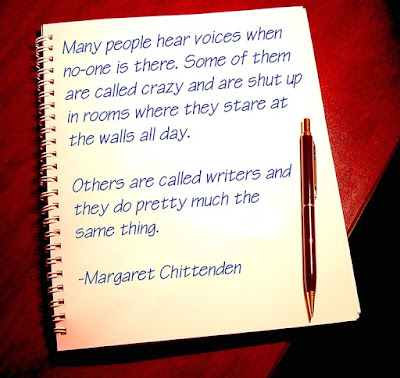 Many people hear voices when
no-one is there. Some of them
are called crazy and are shut up
in rooms where they stare at
the walls all day.
Others are called writers and
they do pretty much the
same thing.
-Margaret Chittenden